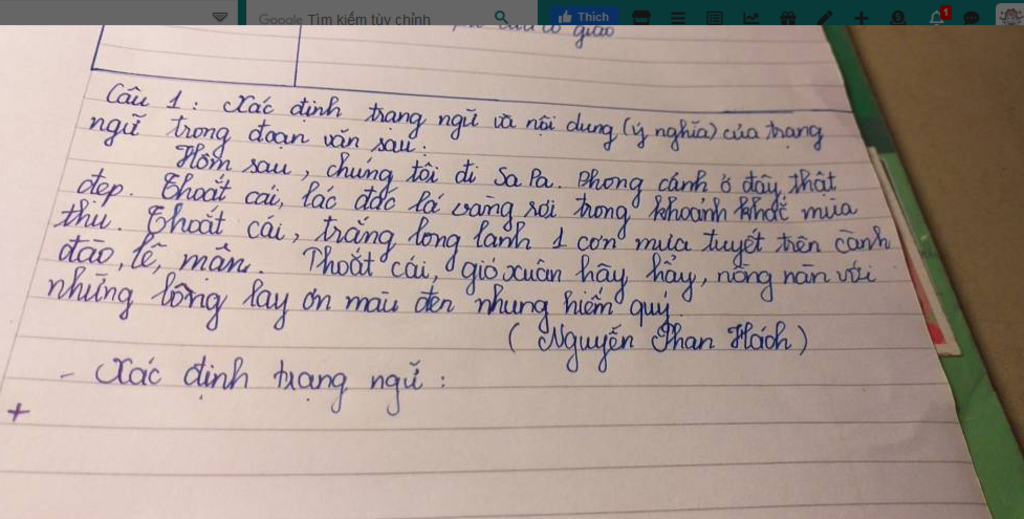 Google Tìm kiếm tùy chỉnh
Thích
1
cô giáo
Câu 1: Xác định trạng ngữ và nội dung (ý nghĩa) của trạng
ngữ trong đoạn văn sau:
Hôm sau, chúng tôi đi Sa Pa. Phong cảnh ở đây thật
đẹp. Thoắt cái, lác đác lá vàng rơi trong khoảnh khắc mùa
thu. Thoắt cái, trắng long lanh 1 cơn mưa tuyết trên cành
đào, lê, mận. Thoắt cái, gió xuân hây hẩy, nồng nàn với
những bông lay ơn màu đen nhung hiếm quý.
(Nguyễn Phan Hách)
- Xác định trạng ngữ:
+